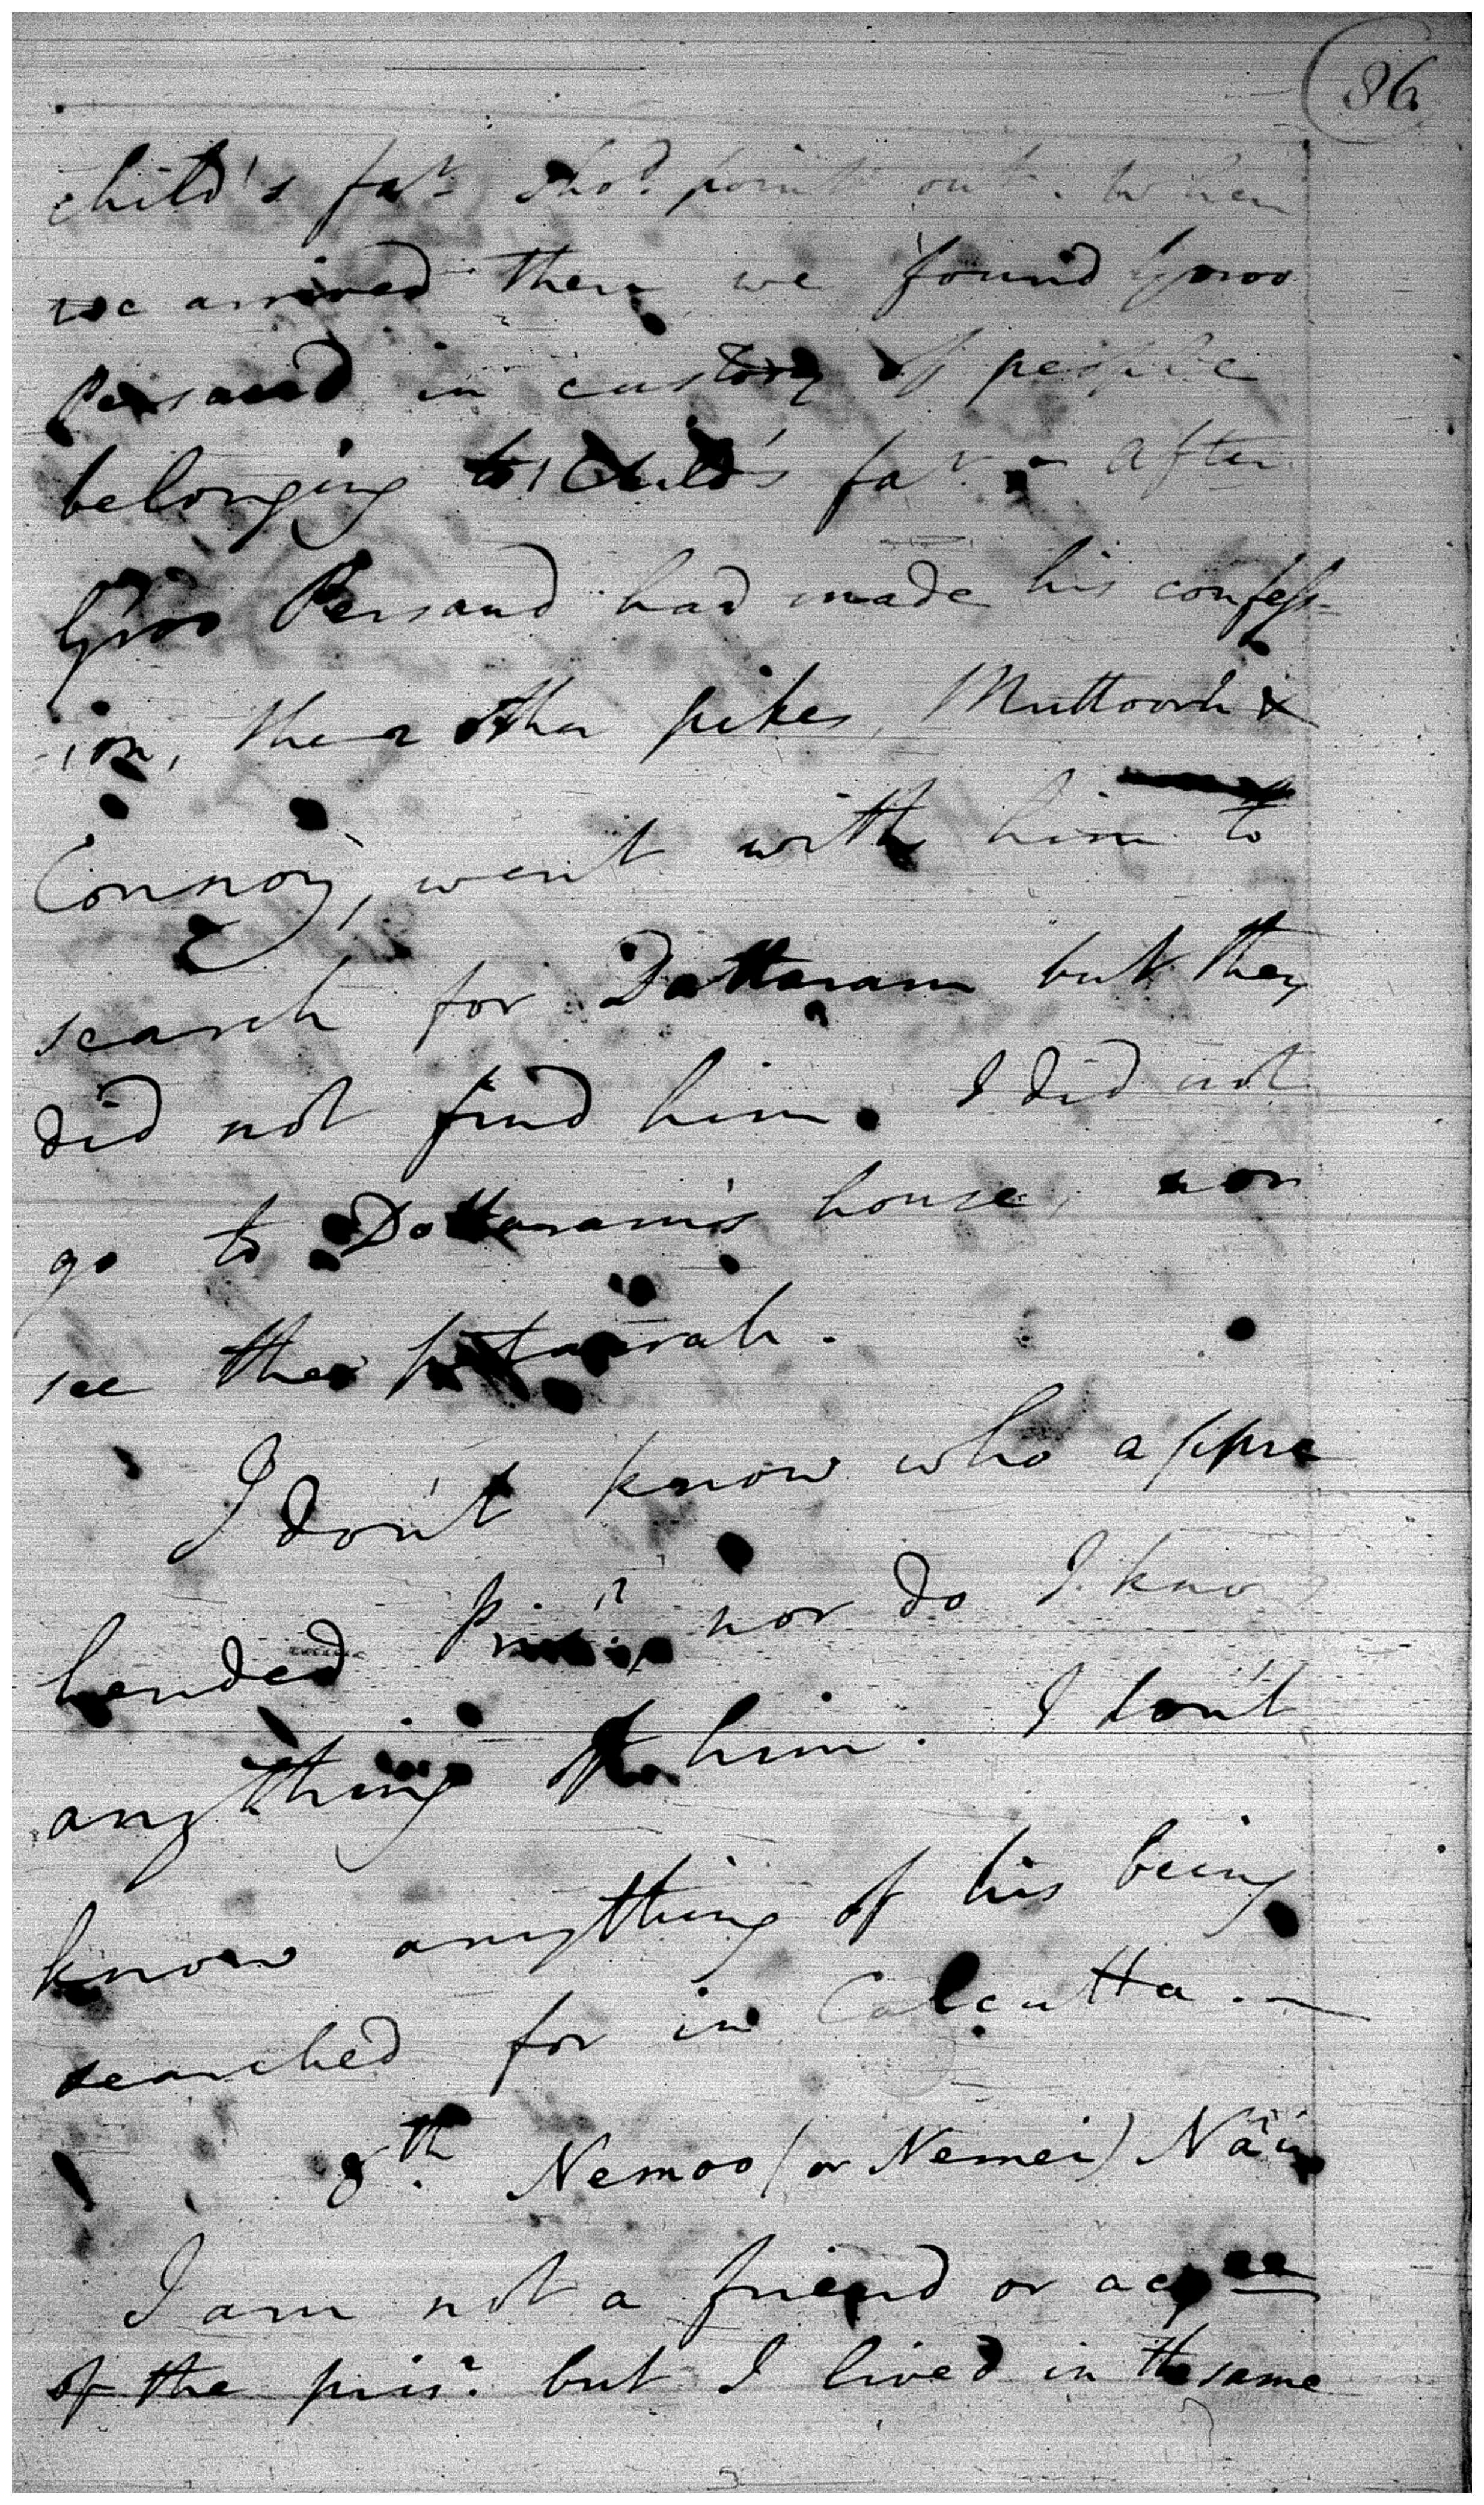 86
child's fa.r sho.d point out. When
we arrived there we found Gooroo
Persaud in custody of people
belonging to Child's fa.r - After
Gooroo Persaud had made his confess-
-ion, the 2 other pikes, Muttoorh &
Connoy, went with him to
search for Dattaram but they
did not find him. I did not
go to Dattaram's house, nor
see the petarah.
I don't know who appre
hended Pris.r, nor do I know
anything of him. I don't
know anything of his being
searched for in Calcutta. -
8.th Nemoo (or Nemei) Näin
I am not a friend or acq
of the pris.r but I lived in the same